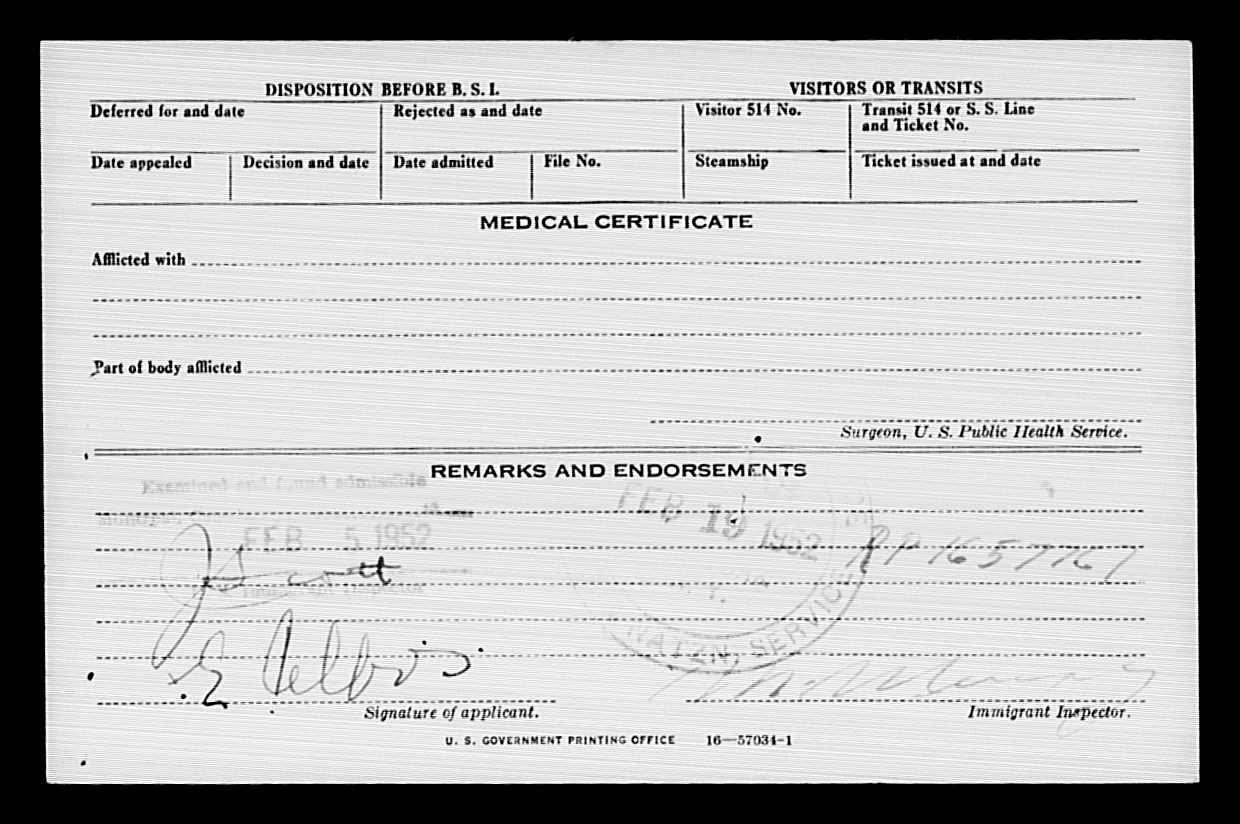 DISPOSITION BEFORE B. S. I.
VISITORS OR TRANSITS
Deferred for and date
Rejected as and date
Visitor 514 No.
Transit 514 or S. S. Line
and Ticket No.
Date appealed
Decision and date
Date admitted
File No.
Steamship
Ticket issued at and date
MEDICAL CERTIFICATE
Afflicted with
Part of body afflicted
Surgeon, U. S. Public Health Service.
REMARKS AND ENDORSEMENTS
Examined and found admissible
FEB 19 1952
FEB 5 1952
PP 1657767
Immigrant Inspector
NATZN. SERVICE
Signature of applicant.
Immigrant Inspector.
U. S. GOVERNMENT PRINTING OFFICE 16—57034-1